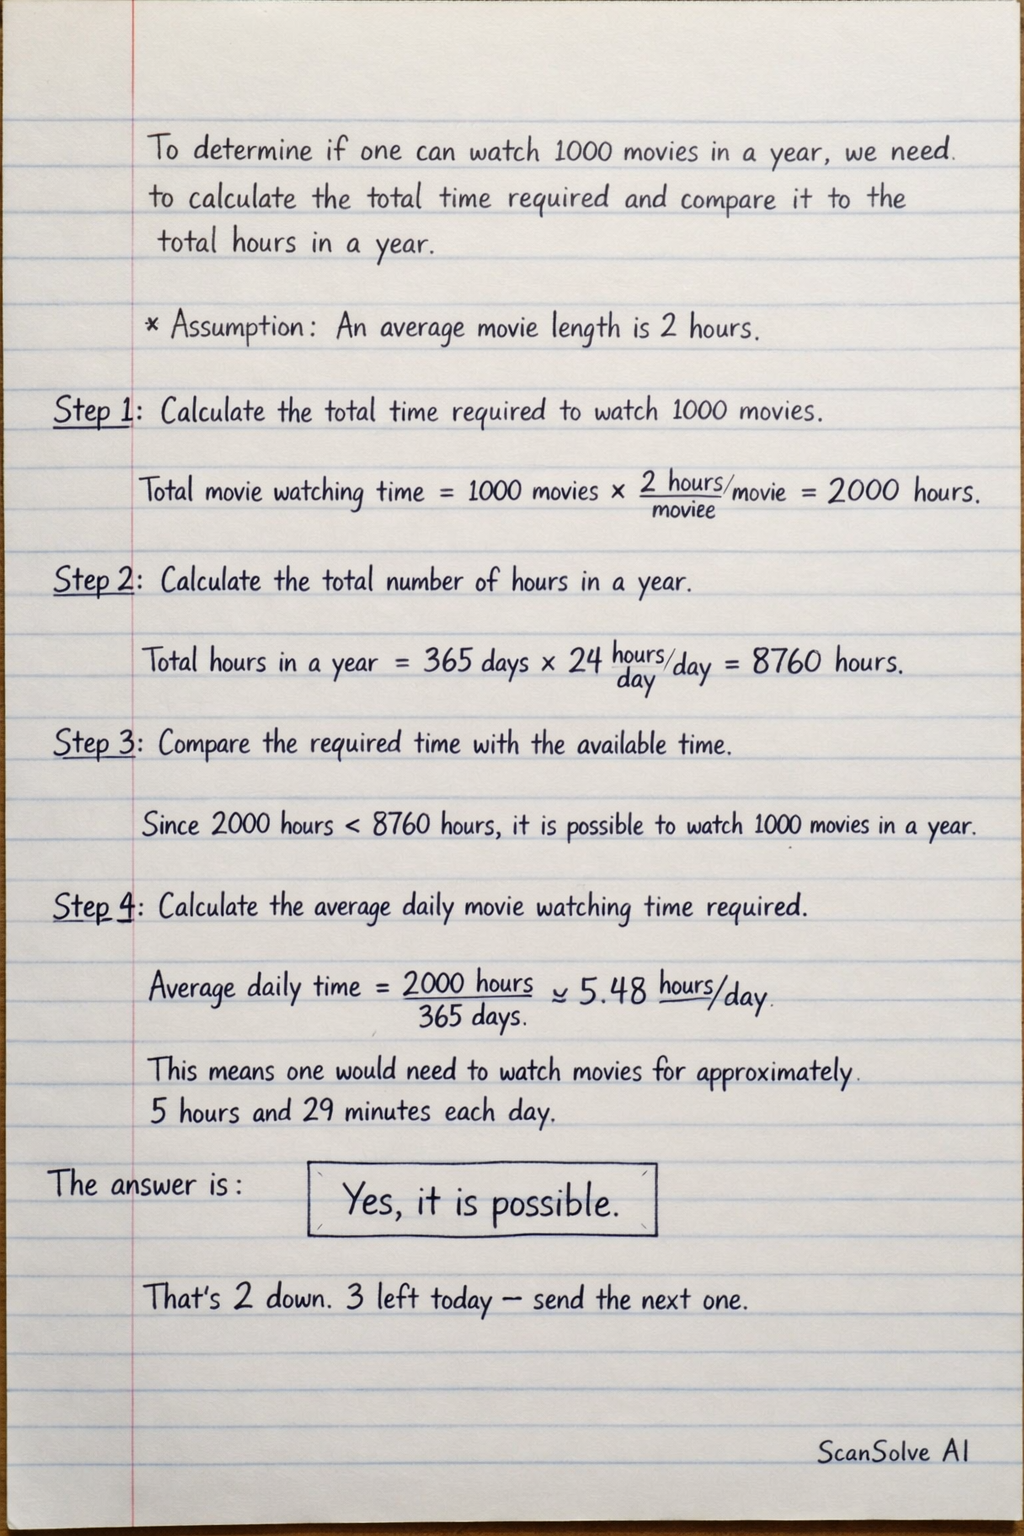 To determine if one can watch 1000 movies in a year, we need.
to calculate the total time required and compare it to the
total hours in a year.
* Assumption: An average movie length is 2 hours.
Step 1: Calculate the total time required to watch 1000 movies.
Total movie watching time = 1000 movies × 2 hours/moviee/movie = 2000 hours.
Step 2: Calculate the total number of hours in a year.
Total hours in a year = 365 days × 24 hours/day/day = 8760 hours.
Step 3: Compare the required time with the available time.
Since 2000 hours < 8760 hours, it is possible to watch 1000 movies in a year.
Step 4: Calculate the average daily movie watching time required.
Average daily time = 2000 hours/365 days. ≃ 5.48 hours/day.
This means one would need to watch movies for approximately.
5 hours and 29 minutes each day.
The answer is: Yes, it is possible.
That's 2 down. 3 left today — send the next one.
ScanSolve AI